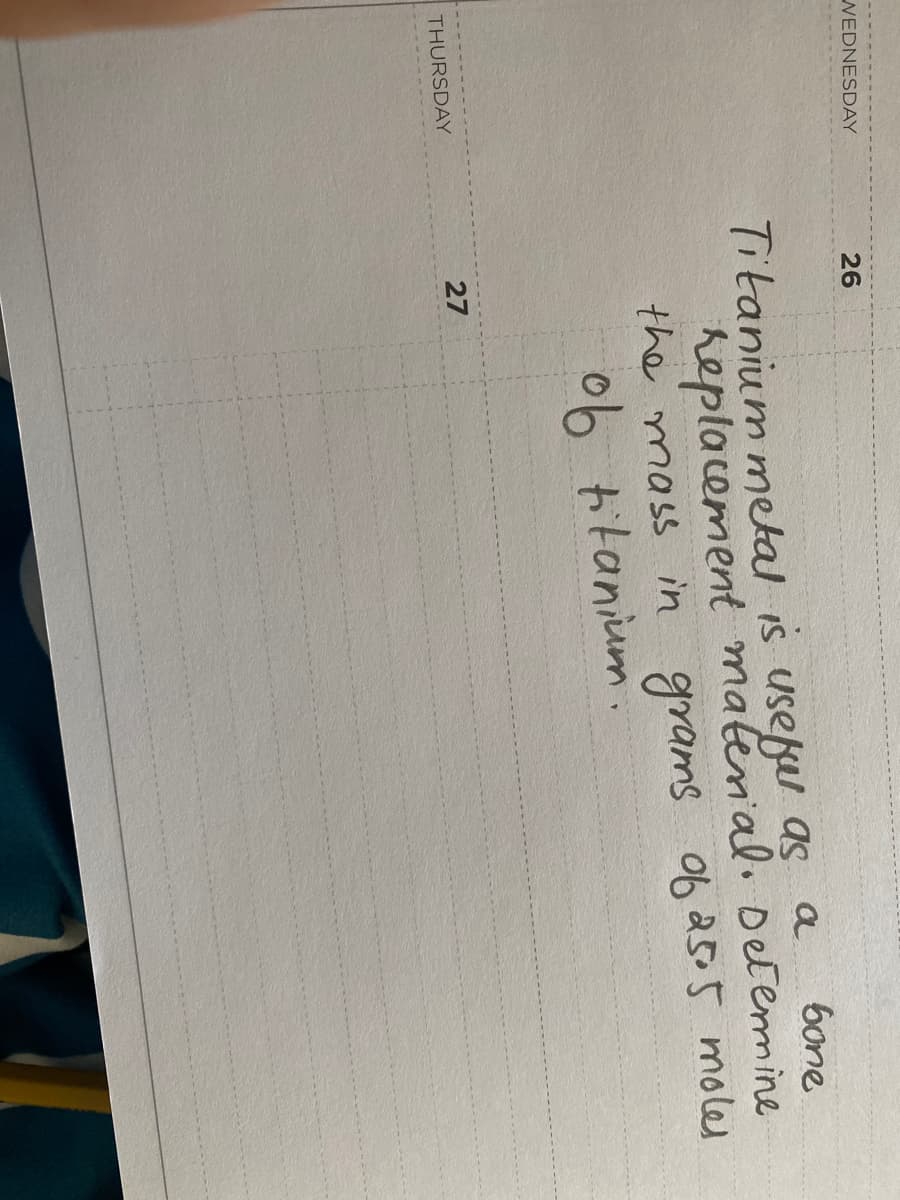 WEDNESDAY 26
Titanium metal is useful as a bone
replacement material. Determine
the mass in grams of 25.5 moles
of titanium.
THURSDAY 27